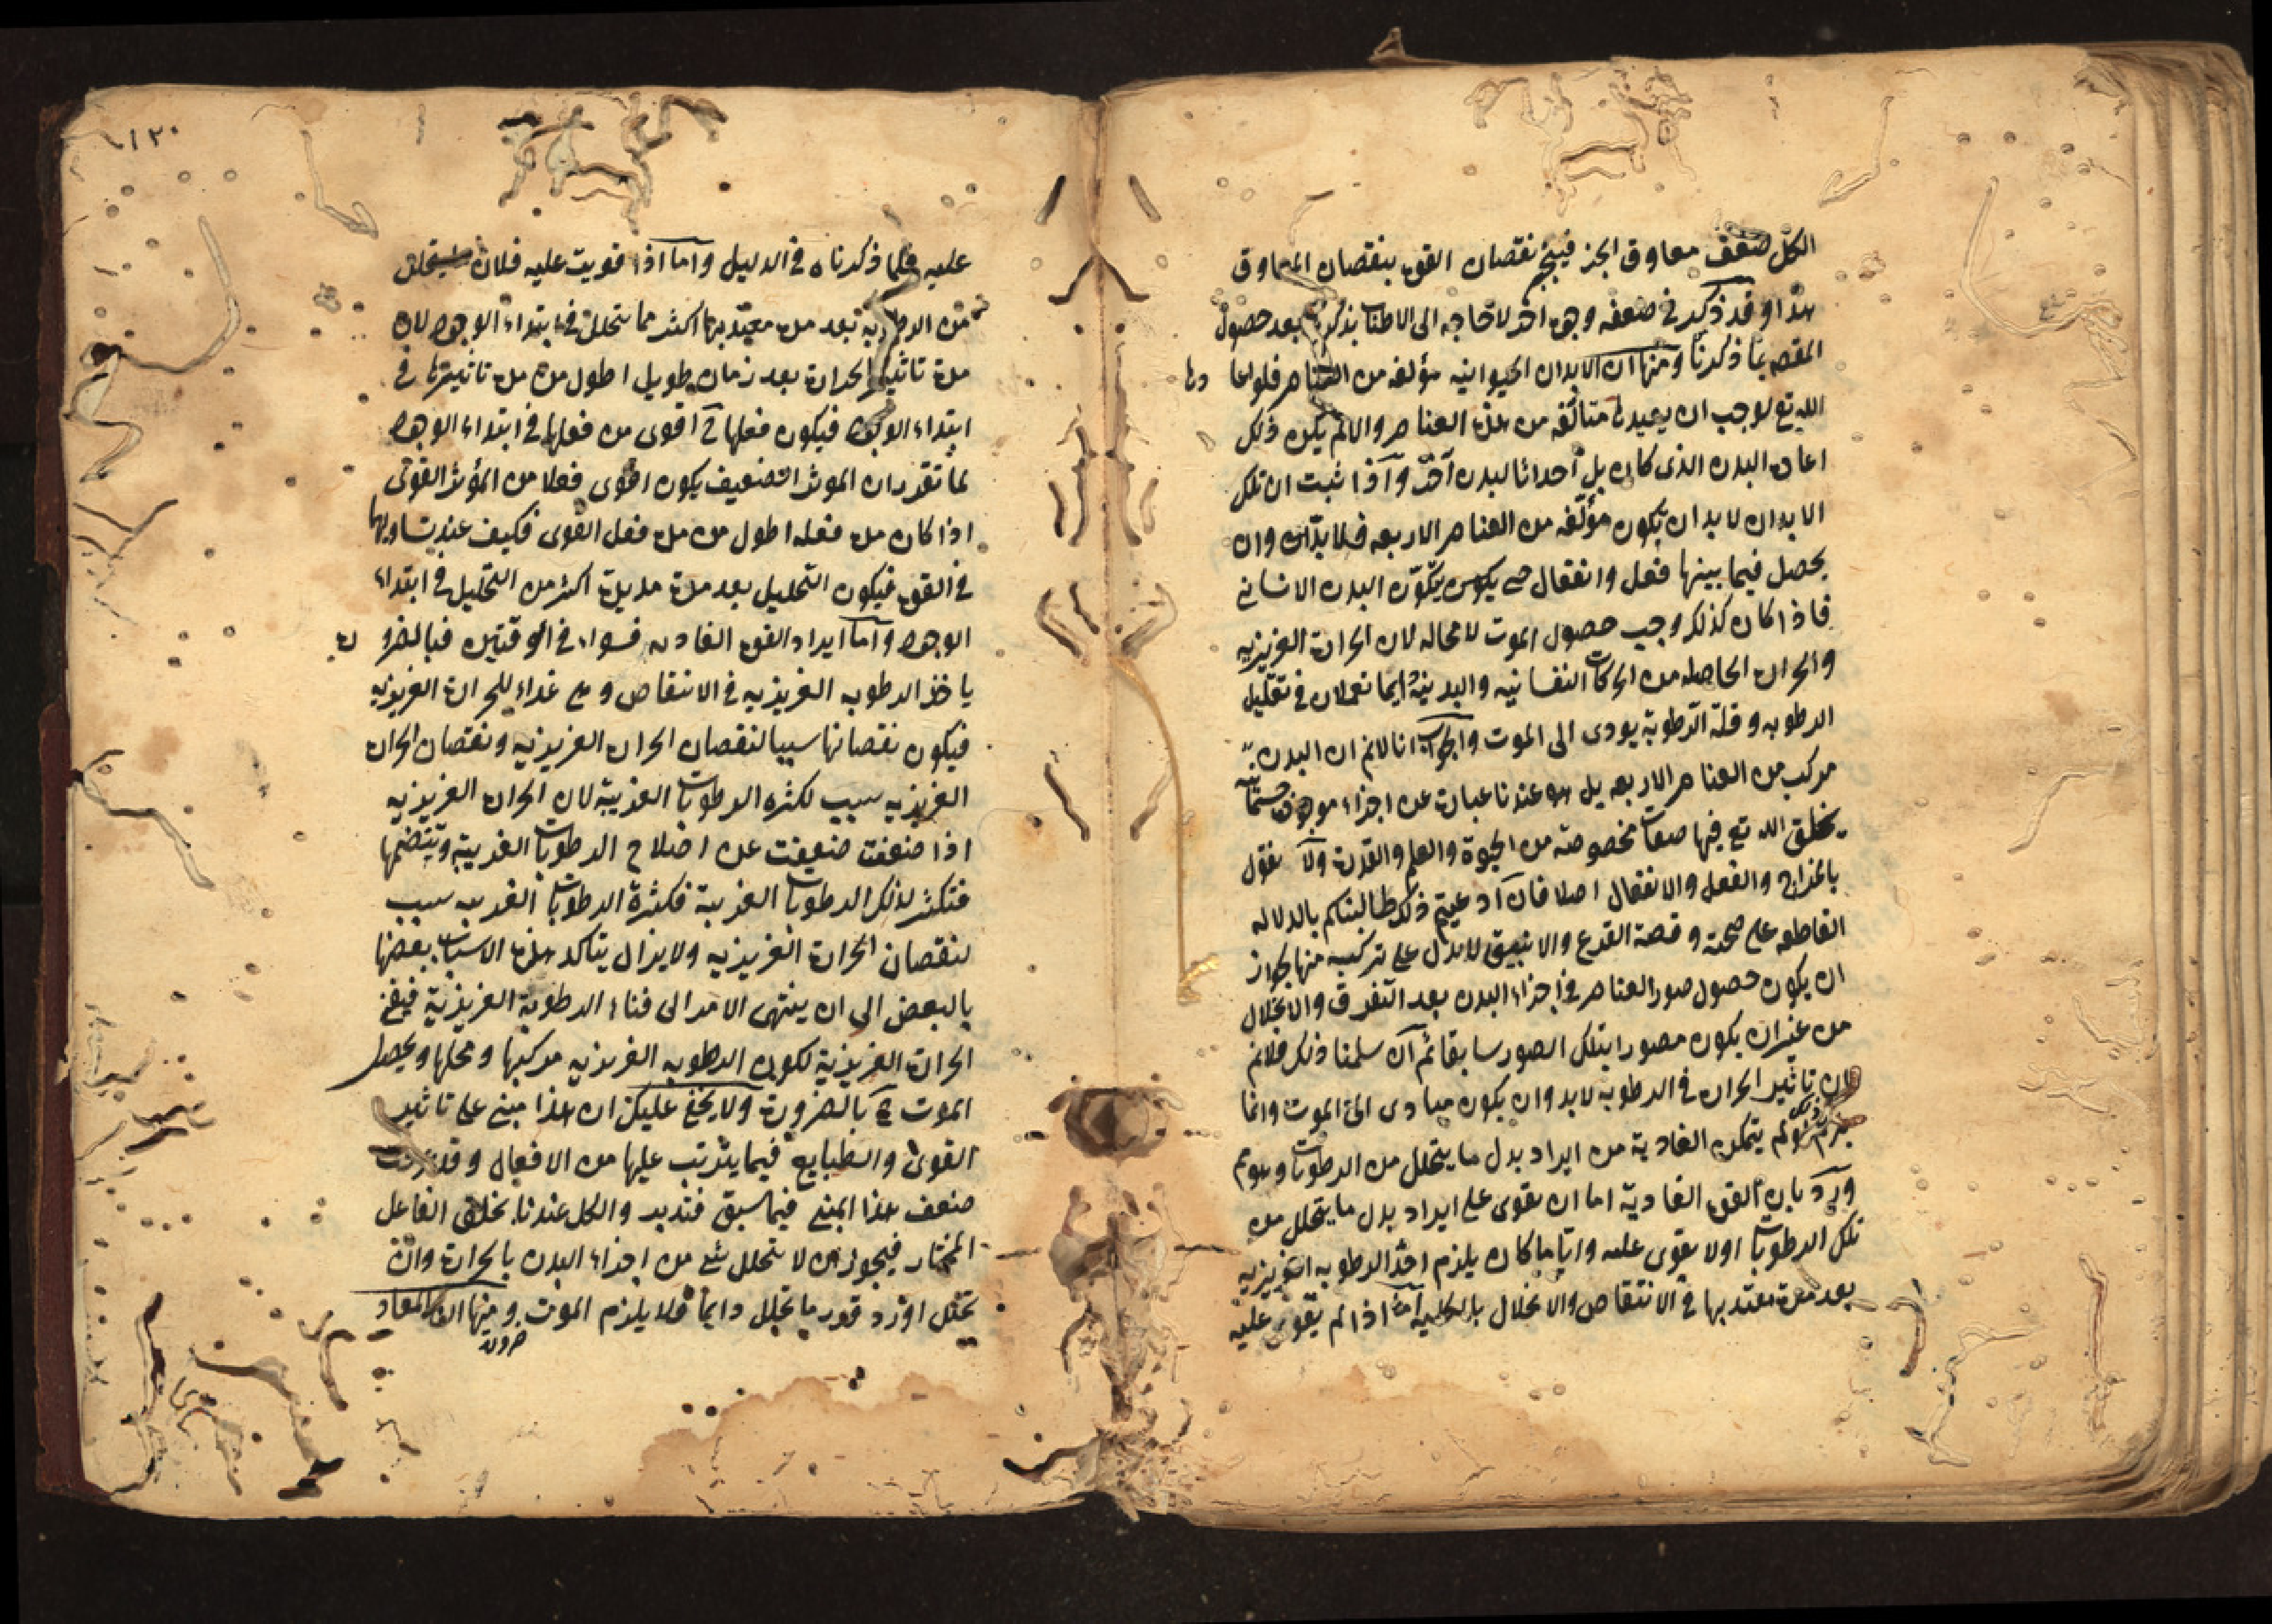 الكل ضعف معاوق الجزء فينجبر نقصان القوة بنقصان المعاوق
هذا وقد ذكر في ضعفه وجوه اخر لا حاجه الى الاطناب بذكرها بعد حصول
المقصد بما ذكرنا ومنها ان الابدان الحيوانيه مؤلفه من العناصر فلو اعا دها
الله تع لوجب ان يعيدها متألفه من هذه العناصر والا لم يكن ذلك
اعادة البدن الذى كان بل احداثا لبدن آخر واذا ثبت ان تلك
الابدان لا بد ان تكون مؤلفه من العناصر الاربعه فلا بد وان
يحصل فيما بينها فعل وانفعال حتى يتكون البدن الانسانى
فاذا كان كذلك وجب حصول الموت لا محاله لان الحرارة الغريزيه
والحرارة الحاصله من الحركات النفسانيه والبدنية دايما تعملان في تقليل
الرطوبه وقلة الرطوبة يودى الى الموت والجواب انا لانم ان البدن
مركب من العناصر الاربعه بل هو عندنا عبارة عن اجزاء موجودة متحيزة
يخلق الله تع فيها صفات مخصوصة من الحيوة والعلم والقدرة ولا نقول
بالمزاج والفعل والانفعال اصلا فان ادعيتم ذلك طالبناكم بالدلاله
القاطعه على صحته وقصة القرع والانبيق لا يدل على تركبه منها لجواز
ان يكون حصول صور العناصر في اجزاء البدن بعد التفرق والانحلال
من غير ان يكون مصورا بتلك الصور سابقا ثم ان سلمنا ذلك فلانم
ان تاثير الحرارة في الرطوبه لا بد وان يكون مبادى الى الموت وانما
يلزم لو لم يتمكن الغاذية من ايراد بدل ما يتحلل من الرطوبات وهو مم
ورد بان القوة الغاذية اما ان تقوى على ايراد بدل ما يتحلل من
تلك الرطوبات اولا تقوى عليه واياما كان يلزم اخذ الرطوبه الغريزيه
بعد مدة معتد بها في الانتقاص والانحلال بالكليه اما اذا لم تقوى عليه
١٢٠
عليه فلما ذكرناه في الدليل واما اذا قويت عليه فلان ما يتحلل
من الرطوبه بعد مدة معتد بها اكثر مما يتحلل في ابتداء الوجود لان
مدة تاثير الحرارة بعد زمان طويل اطول من مدة تاثيرها في
ابتداء الوجود فيكون فعلها ح اقوى من فعلها في ابتداء الوجود
لما تقرر ان الموثر الضعيف يكون اقوى فعلا من المؤثر القوى
اذا كان مدة فعله اطول من مدة فعل القوى فكيف عند تساويهما
في القوة فيكون التحليل بعد مدة مديدة اكثر من التحليل في ابتداء
الوجود واما ايراد القوة الغاذيه فسواء في الوقتين فبالضرورة
ياخذ الرطوبه الغريزيه في الانتقاص وهى غذاء للحرارة الغريزيه
فيكون نقصانها سببا لنقصان الحرارة الغريزيه ونقصان الحرارة
الغريزيه سبب لكثره الرطوبات الغريبة لان الحرارة الغريزيه
اذا ضعفت ضعفت عن اصلاح الرطوبات الغريبة وتنضجها
فتكثر لذلك الرطوبات الغريبة فكثرة الرطوبات الغريبه سبب
لنقصان الحرارة الغريزيه ولا يزال يتاكد هذه الاسباب بعضها
بالبعض الى ان ينتهى الامر الى فناء الرطوبة الغريزية فيفنى
الحرارة الغريزية لكون الرطوبه الغريزيه مركبها ومحلها ويحصل
الموت ح بالضرورة ولا يخفى عليك ان هذا مبنى على تاثير
القوى والطبايع فيما يترتب عليها من الافعال وقد عرفت
ضعف هذا المبنى فيما سبق فتدبر والكل عندنا بخلق الفاعل
المختار فيجوز ان لا يتحلل شئ من اجزاء البدن بالحرارة وان
تحلل اورد قدر ما تحلل دايما فلا يلزم الموت ومنها ان المعاد
ضرورة